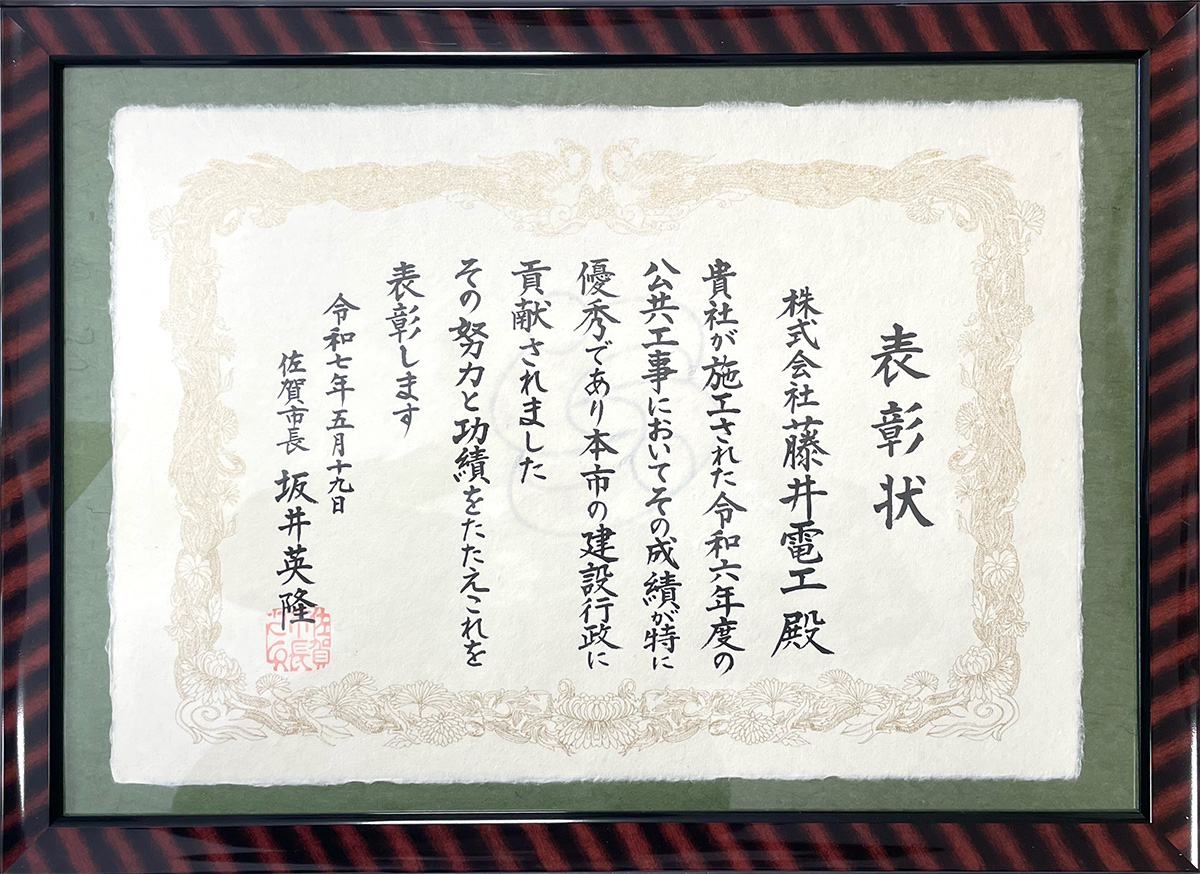 表彰状
株式会社藤井電工殿
貴社が施工された令和六年度の
公共工事においてその成績が特に
優秀であり本市の建設行政に
貢献されました
その努力と功績をたたえこれを
表彰します
令和七年五月十九日
佐賀市長 坂井英隆
佐賀市長之印